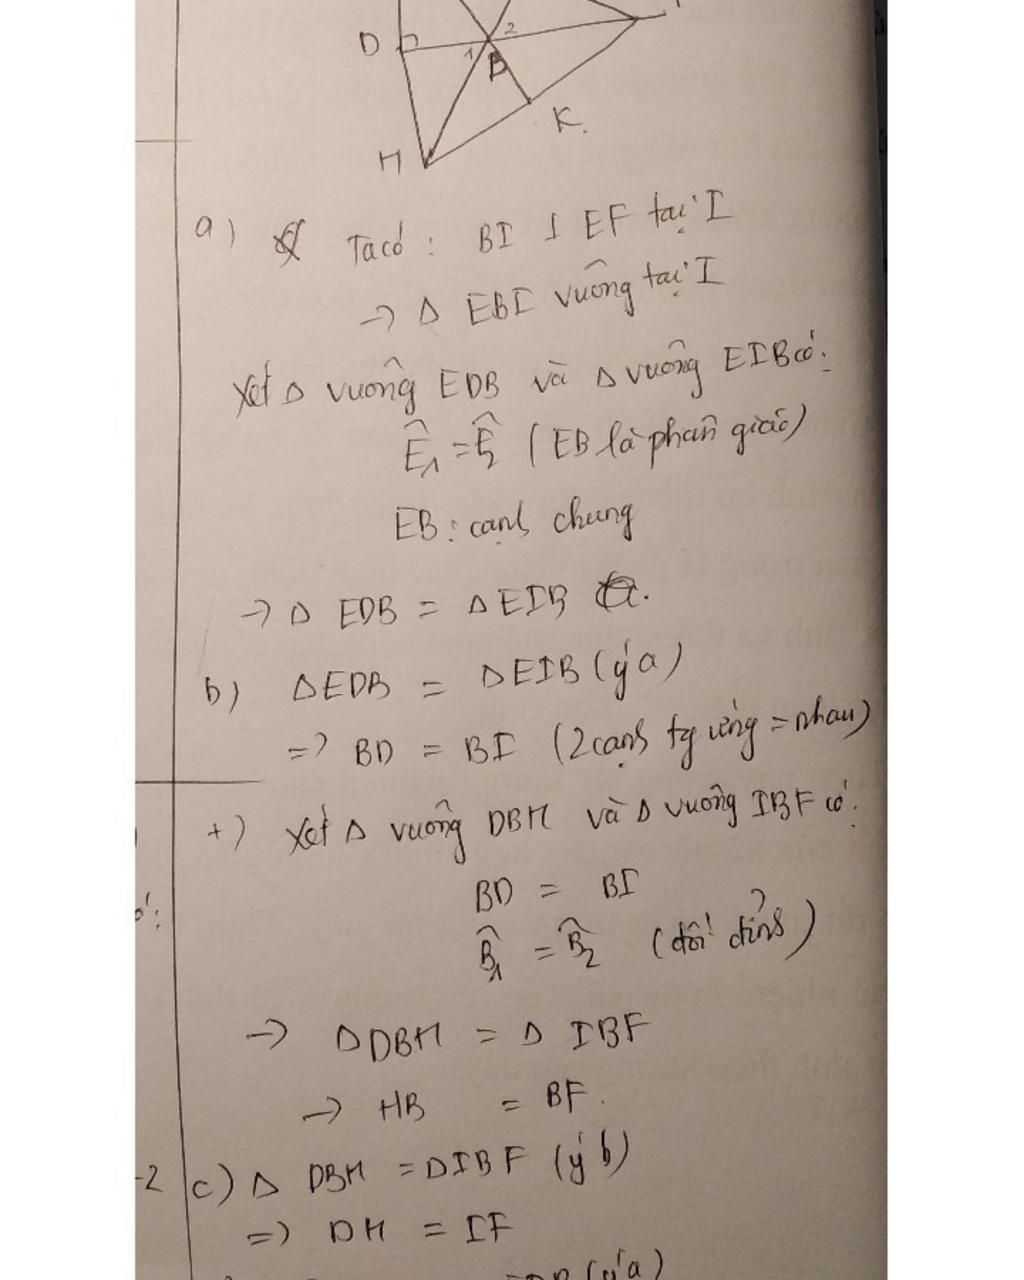 D
1
2
B
K.
H
a) Ta có : BI ⊥ EF tại I
→ Δ EBI vuông tại I
Xét Δ vuông EDB và Δ vuông EIB có:
Ê1 = Ê2 ( EB là phân giác)
EB : cạnh chung
→ Δ EDB = Δ EIB
b) ΔEDB = ΔEIB (ý a)
=> BD = BI (2 cạnh tg ứng = nhau)
+) Xét Δ vuông DBH và Δ vuông IBF có:
BD = BI
B̂1 = B̂2 (đối đỉnh)
→ ΔDBH = Δ IBF
→ HB = BF.
-2
c) Δ DBH = ΔIBF (ý b)
=> DH = IF
(ý a)